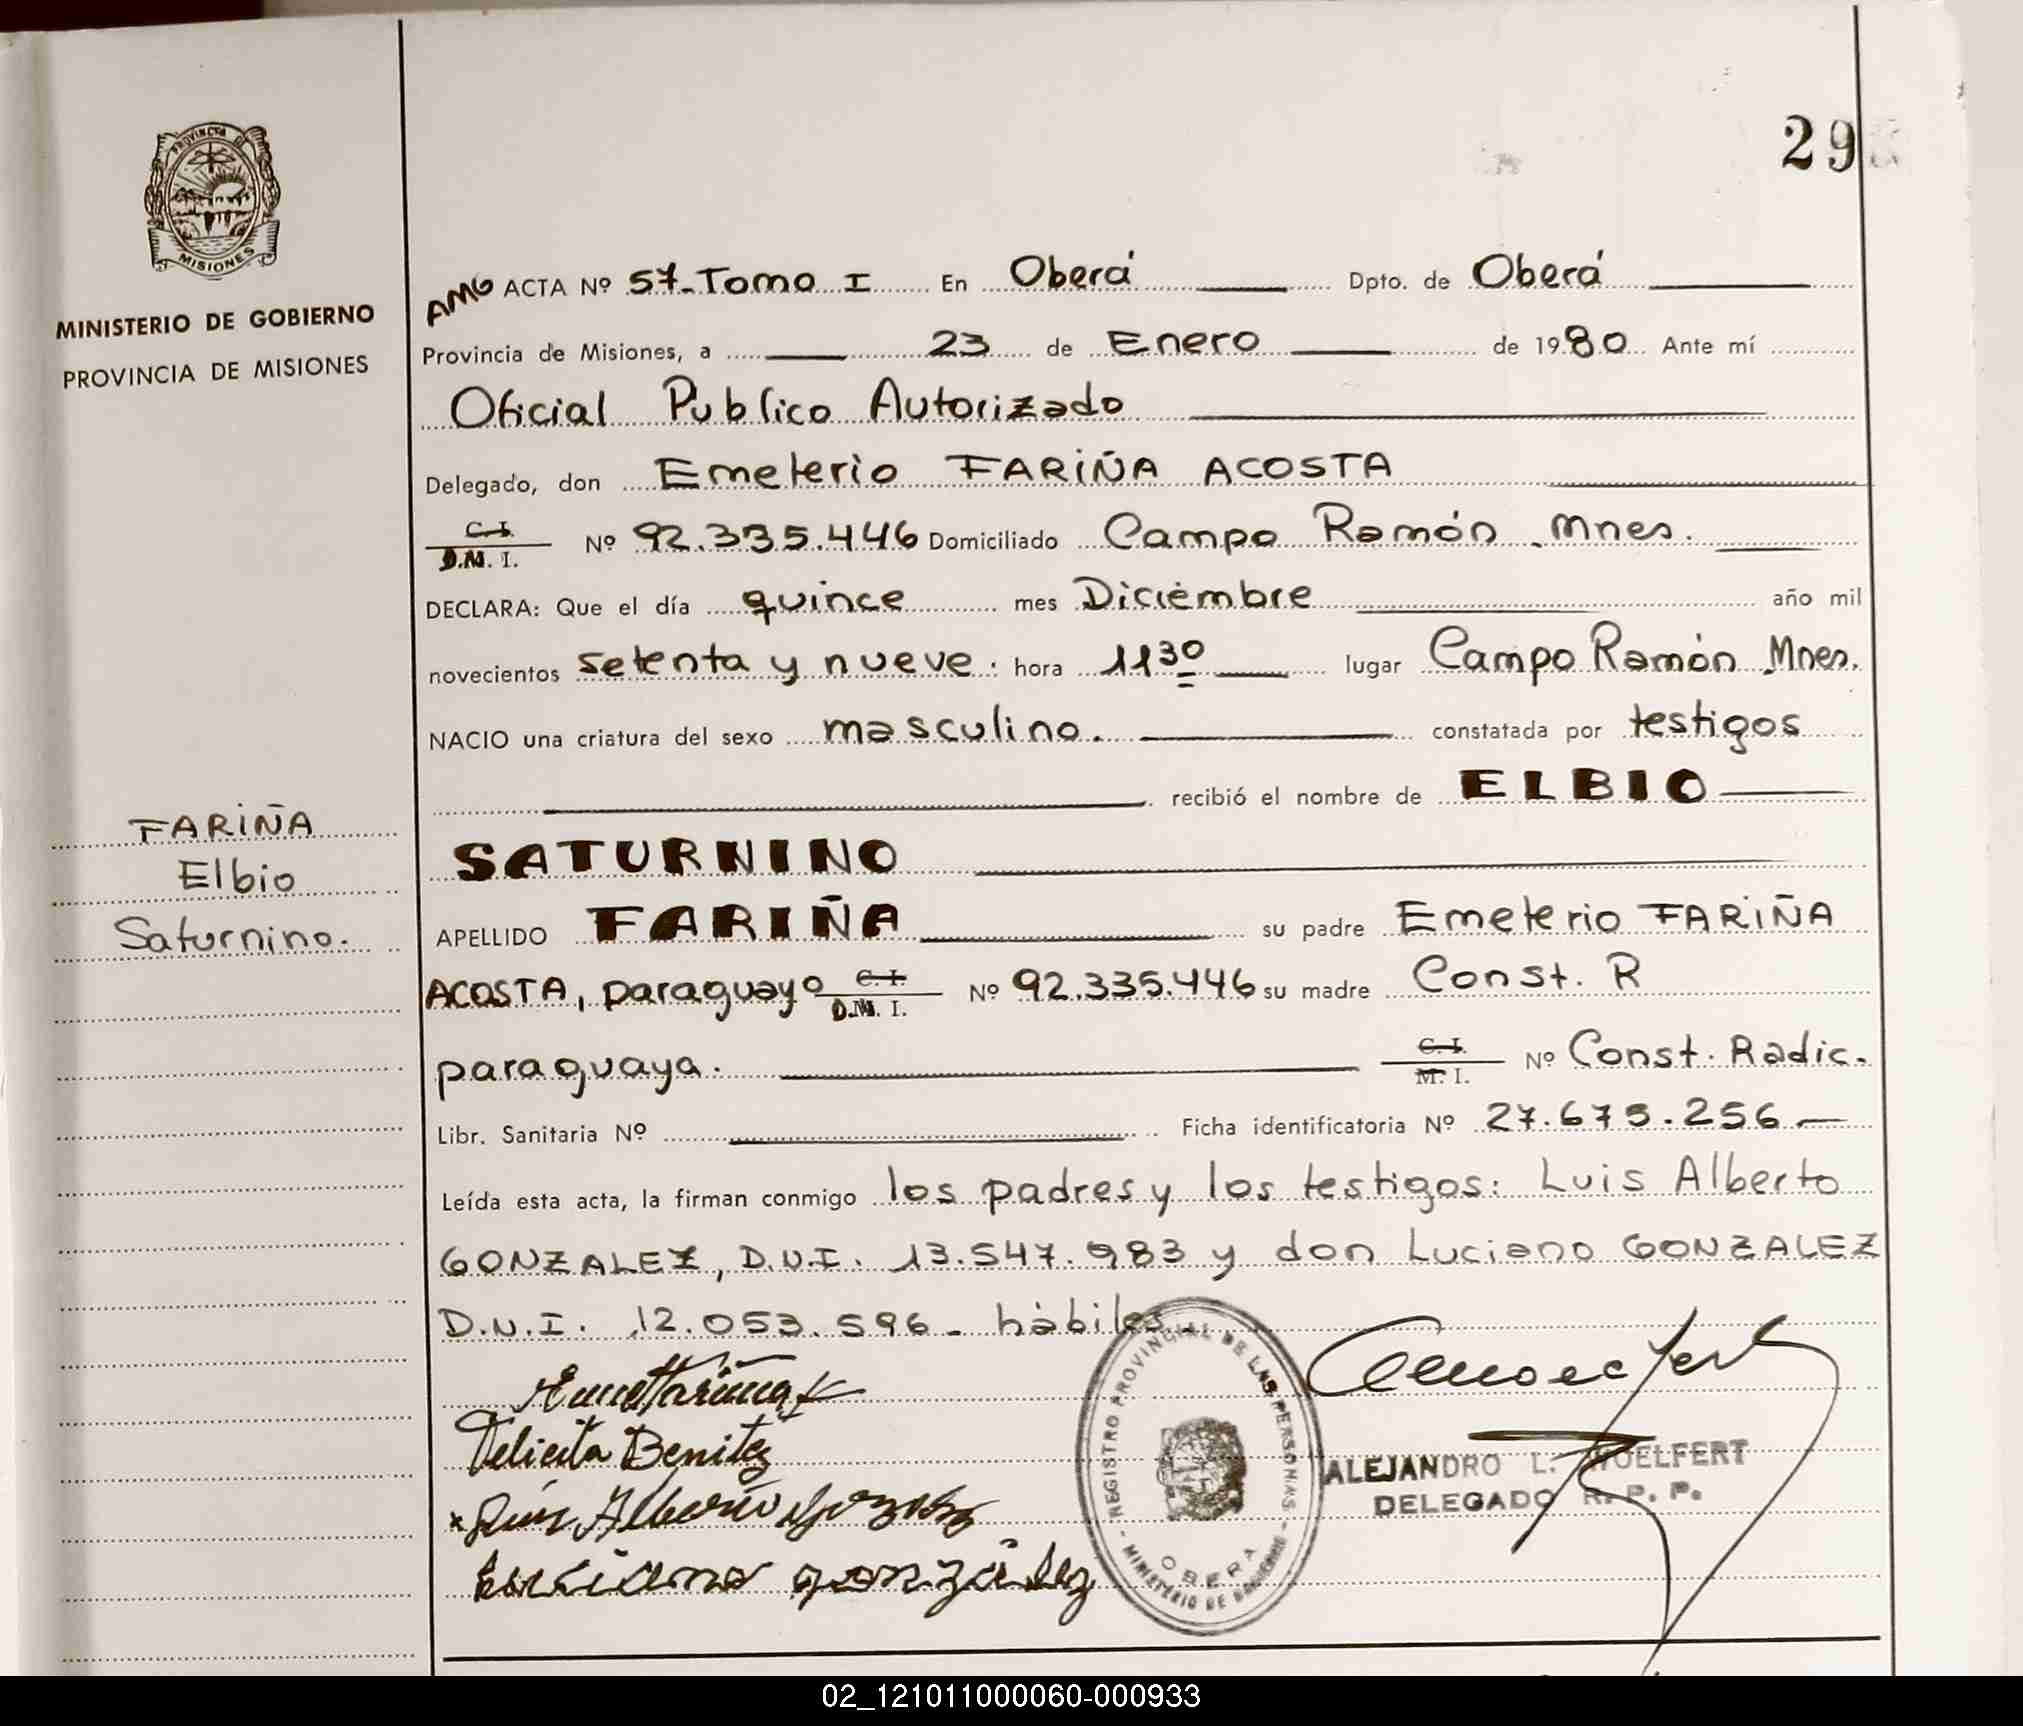 PROVINCIA DE
MISIONES
MINISTERIO DE GOBIERNO
PROVINCIA DE MISIONES
29
AMG ACTA Nº 57-Tomo I En Oberá Dpto. de Oberá
Provincia de Misiones, a 23 de Enero de 1980 Ante mí
Oficial Publico Autorizado
Delegado, don Emeterio FARIÑA ACOSTA
C.I.
D.N. I. Nº 92.335.446 Domiciliado Campo Ramón Mnes.
DECLARA: Que el día quince mes Diciembre año mil
novecientos setenta y nueve. hora 11 30 lugar Campo Ramón Mnes.
NACIO una criatura del sexo masculino. constatada por testigos
recibió el nombre de ELBIO
FARIÑA
Elbio
Saturnino.
SATURNINO
APELLIDO FARIÑA su padre Emeterio FARIÑA
ACOSTA, paraguayo C.I. D.N. I. Nº 92.335.446 su madre Const. R
paraguaya. C.I. M. I. Nº Const. Radic.
Libr. Sanitaria Nº Ficha identificatoria Nº 27.675.256
Leída esta acta, la firman conmigo los padres y los testigos: Luis Alberto
GONZALEZ, D.N.I. 13.547.983 y don Luciano GONZALEZ
D.N.I. 12.053.596 - hábiles
Felicita Benitez
Luis Alberto Gonzalez
Luciano gonzález
REGISTRO PROVINCIAL DE LAS PERSONAS
MINISTERIO DE GOBIERNO
OBERA
ALEJANDRO L. WOELFERT
DELEGADO R. P. P.
02_121011000060-000933